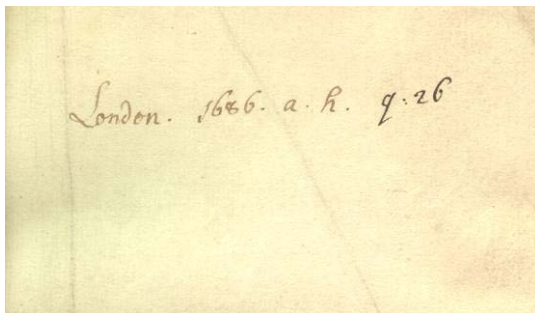 London. 1686. a. h. q: 26